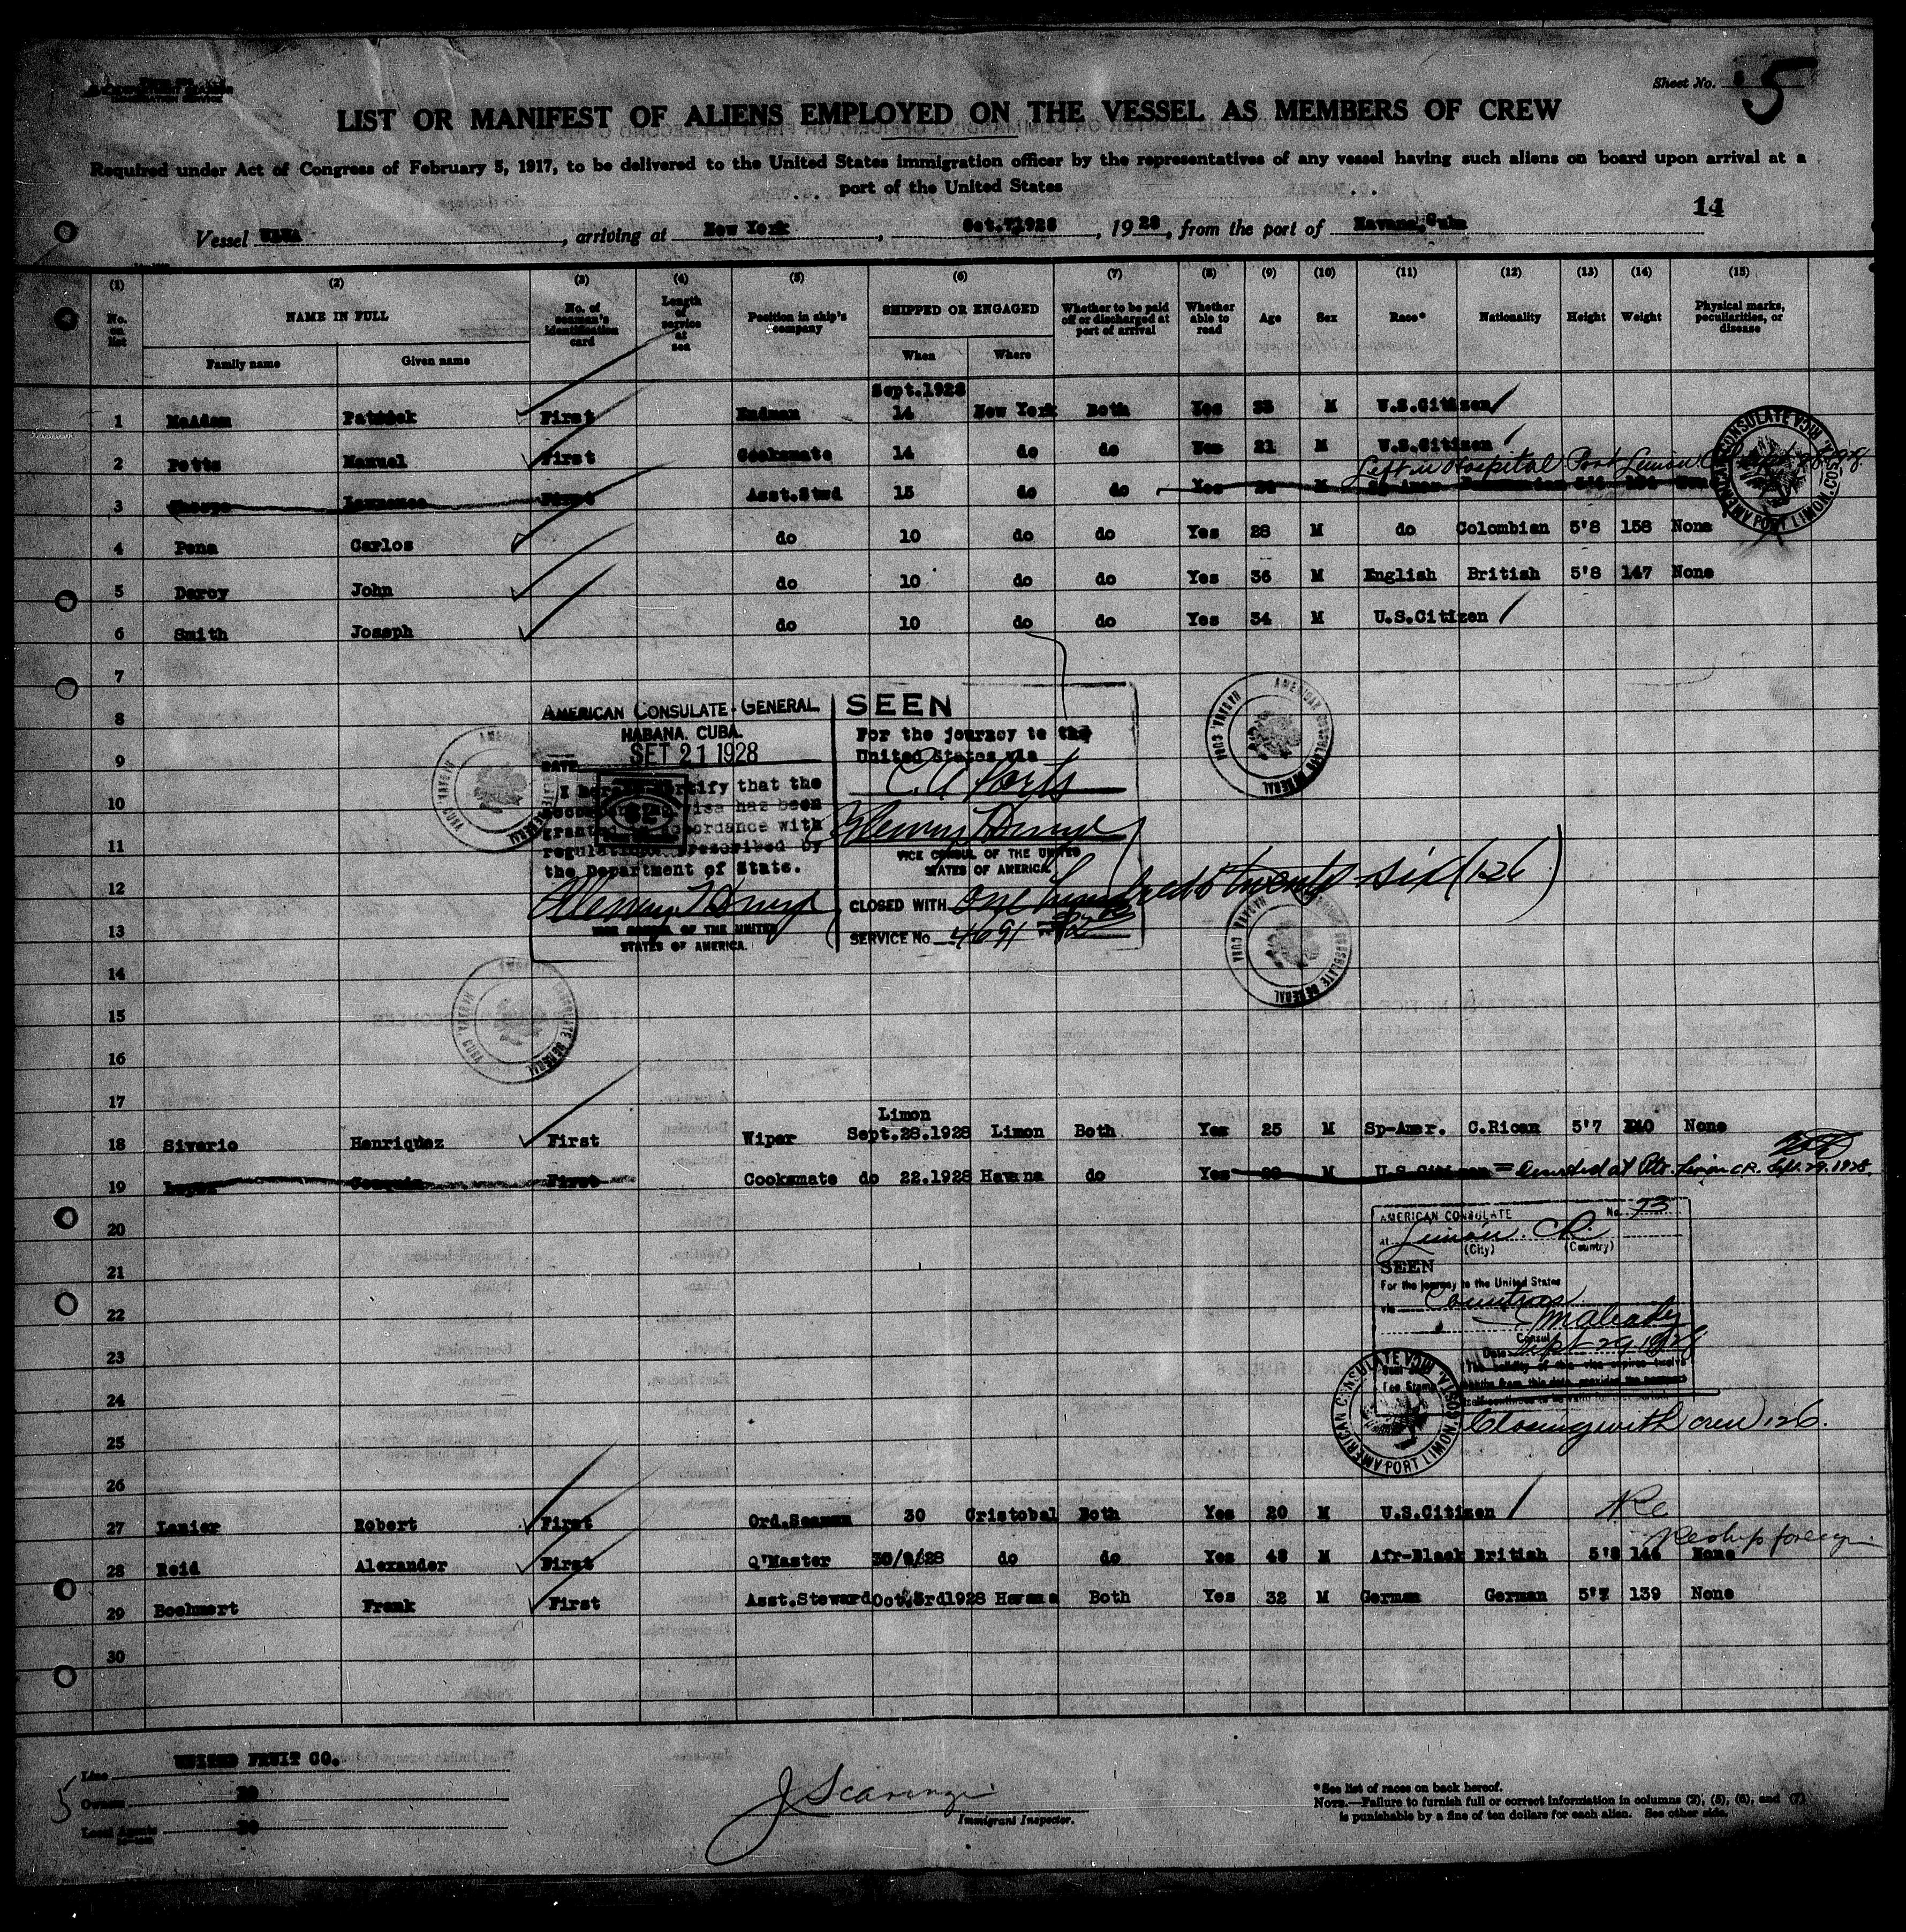 Sheet No. 5
LIST OR MANIFEST OF ALIENS EMPLOYED ON THE VESSEL AS MEMBERS OF CREW
Required under Act of Congress of February 5, 1917, to be delivered to the United States immigration officer by the representatives of any vessel having such aliens on board upon arrival at a
port of the United States
14
Vessel , arriving at New York , Oct. 1928 , 1928 , from the port of Havana, Cuba
(1) (2) (3) (4) (5) (6) (7) (8) (9) (10) (11) (12) (13) (14) (15)
No. on list NAME IN FULL Family name Given name No. of seaman's identification card Length of service at sea Position in ship's company SHIPPED OR ENGAGED When Where Whether to be paid off or discharged at port of arrival Whether able to read Age Sex Race* Nationality Height Weight Physical marks, peculiarities, or disease
Sept.1928
1 McAdam Patrick First 14 New York Both Yes 33 M U.S.Citizen
2 Potts Manuel First Cooksmate 14 do do Yes 21 M U.S.Citizen
Left in Hospital Port Limon
3 Lawrence First Asst.Stwd 15 do do Yes M
4 Pena Carlos do 10 do do Yes 28 M do Colombian 5'8 158 None
5 Darcy John do 10 do do Yes 36 M English British 5'8 147 None
6 Smith Joseph do 10 do do Yes 34 M U.S.Citizen
7
8
9
10
11
12
13
14
15
16
17
AMERICAN CONSULATE PORT LIMON, COSTA RICA
AMERICAN CONSULATE-GENERAL
HABANA, CUBA.
DATE SET 21 1928
I hereby certify that the
visa has been
granted in accordance with
regulations prescribed by
the Department of State.
VICE CONSUL OF THE UNITED
STATES OF AMERICA.
SEEN
For the journey to the
United States via
C.A Ports
VICE CONSUL OF THE UNITED
STATES OF AMERICA
CLOSED WITH one hundred & twenty six (126)
SERVICE No 4691
AMERICAN CONSULATE GENERAL HABANA, CUBA
AMERICAN CONSULATE GENERAL HABANA, CUBA
AMERICAN CONSULATE GENERAL HABANA, CUBA
AMERICAN CONSULATE GENERAL HABANA, CUBA
Limon
18 Siverio Henriquez First Wiper Sept.28.1928 Limon Both Yes 25 M Sp-Amer. C.Rican 5'7 140 None
19 Joaquin First Cooksmate do 22.1928 Havana do Yes M U.S.Citizen = Landed at Pto. Limon C.R. Sept. 29, 1928
20
21
22
23
24
25
26
AMERICAN CONSULATE No. 73
at Limon C.R.
(City) (Country)
SEEN
For the journey to the United States
via Countries
Consul
Date Sept 29 1928
The validity of this visa expires twelve
months from this date, provided the passport
Fee Stamp
AMERICAN CONSULATE PORT LIMON, COSTA RICA
Closing with crew 126.
27 Lanier Robert First Ord.Seaman 30 Cristobal Both Yes 20 M U.S.Citizen
Reship foreign
28 Reid Alexander First Q'Master 30/9/28 do do Yes 48 M Afr-Black British 5'8 146 None
29 Boehmert Frank First Asst.Steward Oct.3rd1928 Havana Both Yes 32 M German German 5'7 139 None
30
Line UNITED FRUIT CO.
Owners DO
Local Agents DO
5
Immigrant Inspector.
*See list of races on back hereof.
NOTE.—Failure to furnish full or correct information in columns (2), (5), (6), and (7)
is punishable by a fine of ten dollars for each alien. See other side.